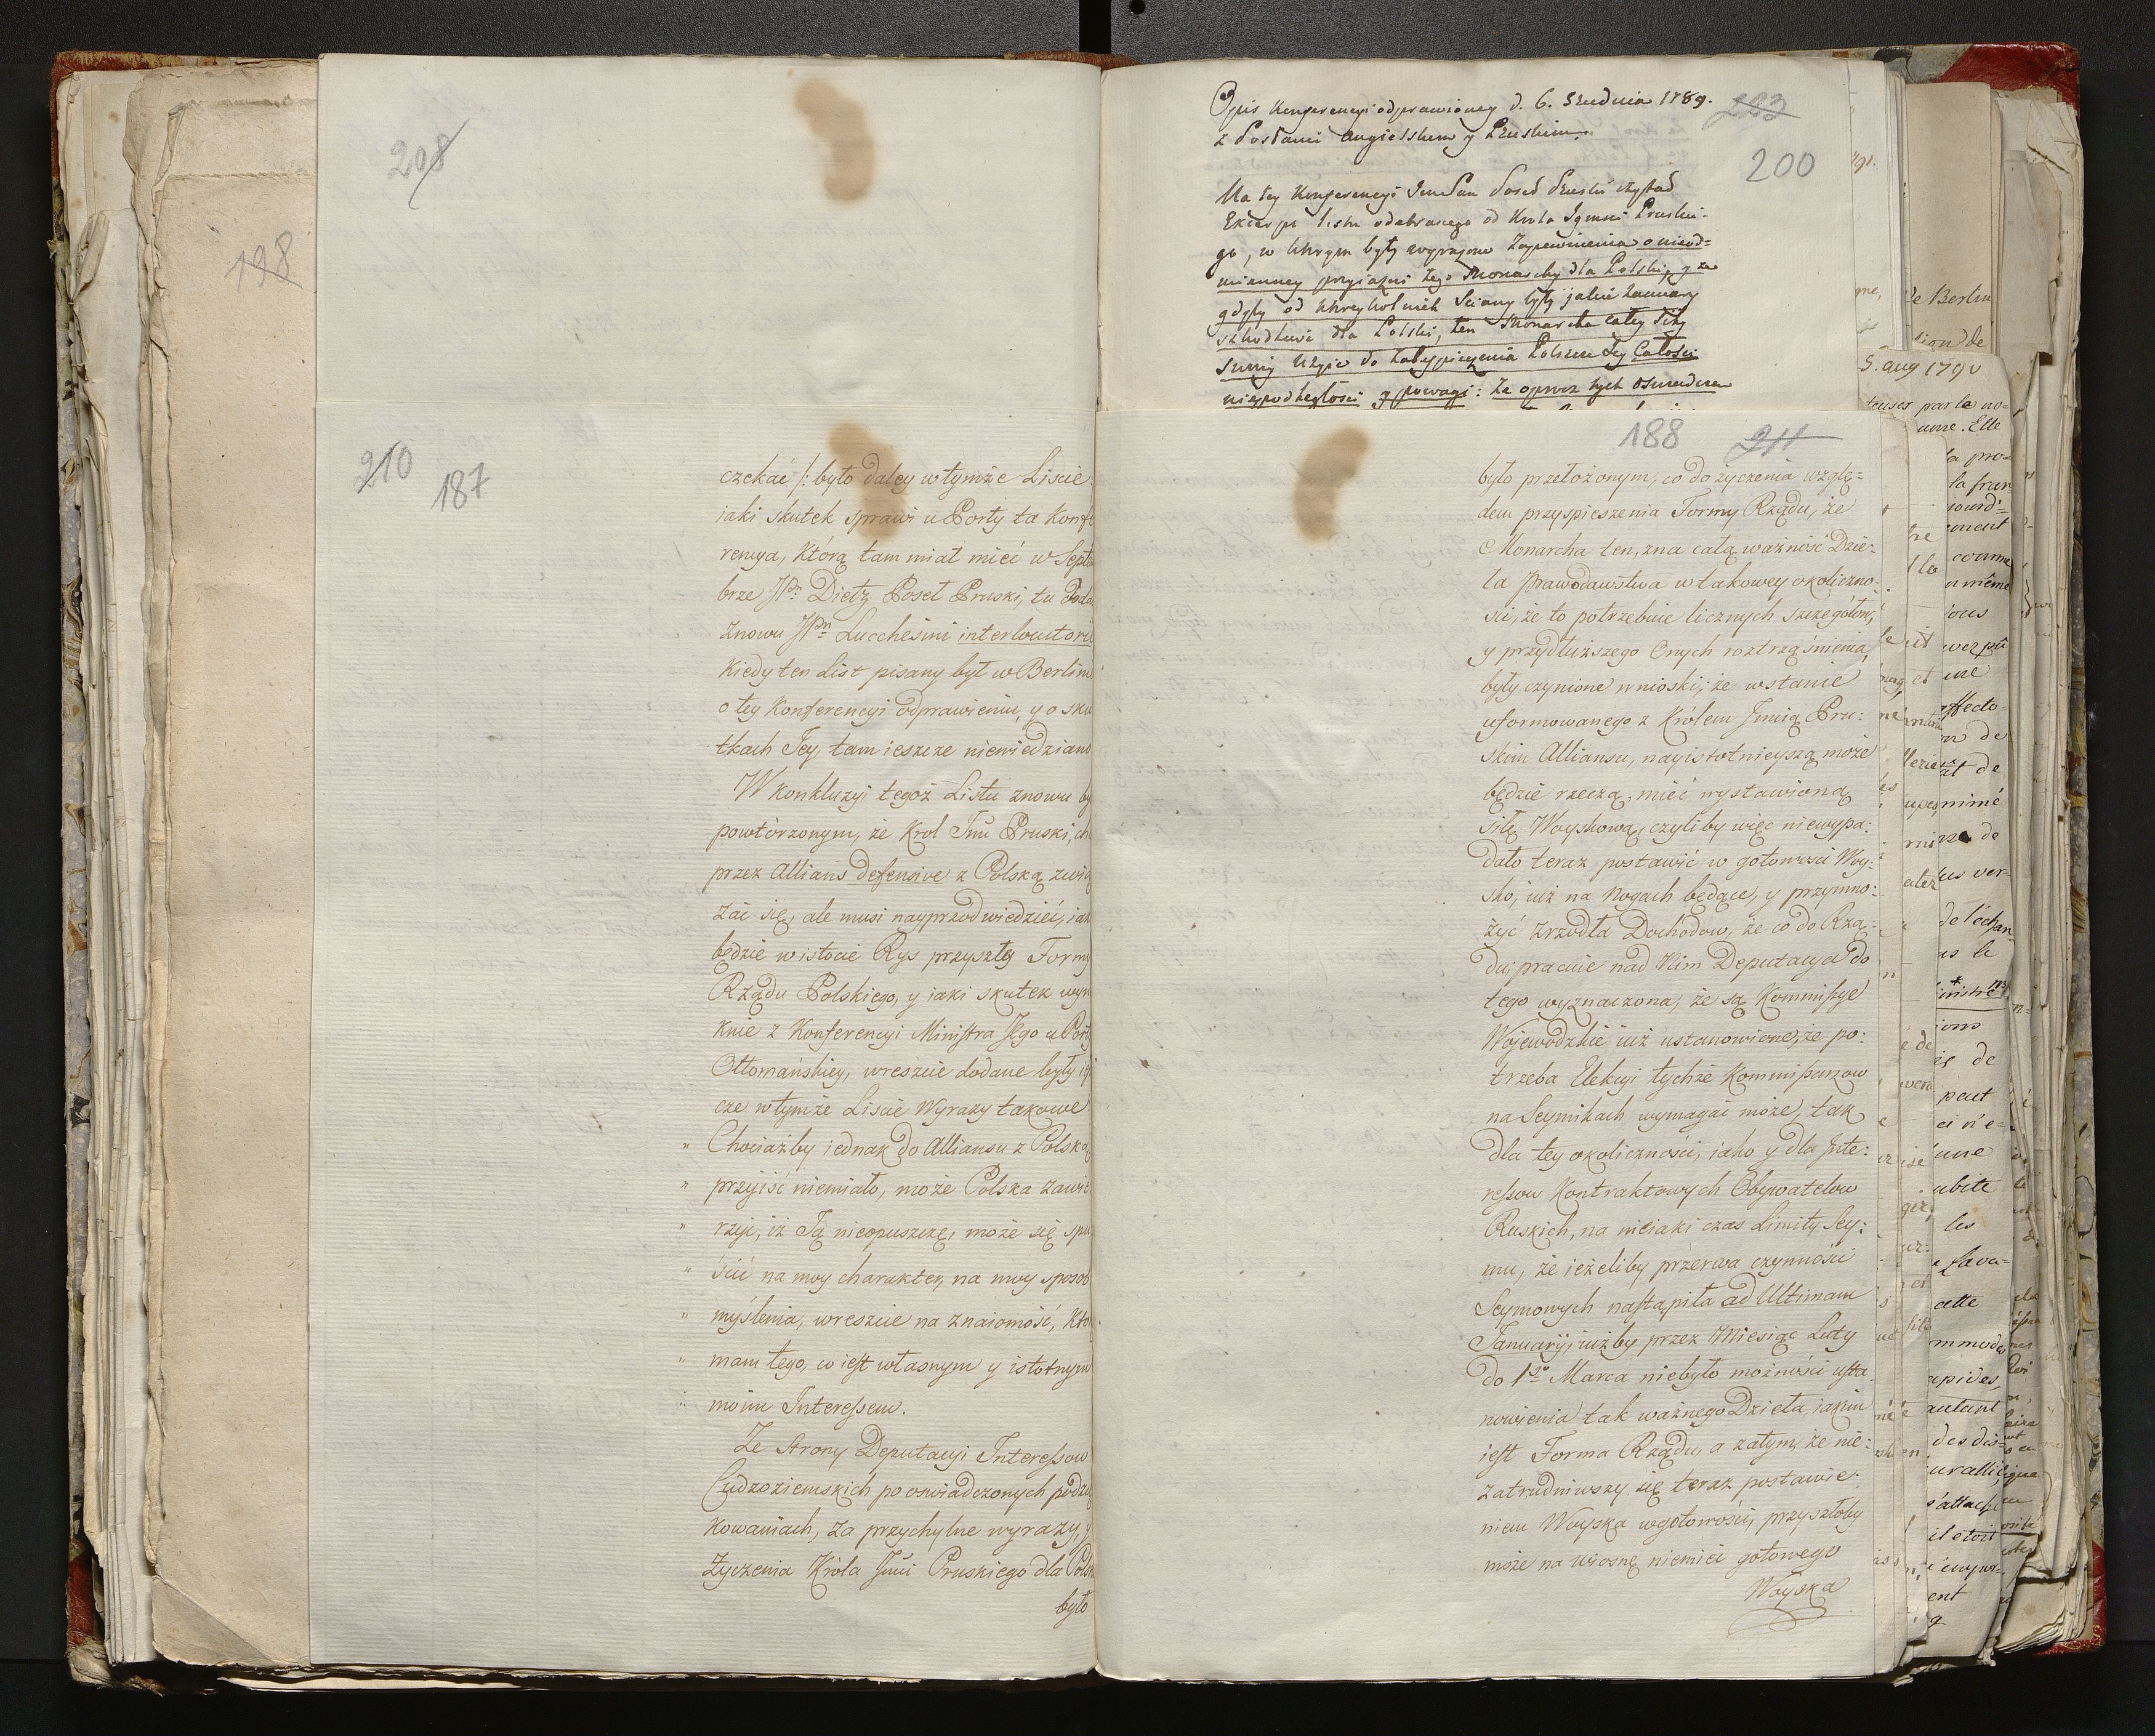 208
198
210
187
czekać /: było daley w tymże Liście
iaki skutek sprawi u Porty ta Konfe
rencya, którą tam miał mieć w Septe
brze JPn Dietz Poseł Pruski, tu doda
znowu JPn Lucchesini interloutorie
Kiedy ten List pisany był w Berlini
o tey Konferencyi odprawieniu, y o sku
tkach Jey, tam ieszcze niewiedziano
W konkluzyi tegoż Listu znowu by
powtórzonym, że Krol Jmć Pruski, ch
przez Allians defensive z Polską zwią
zać się, ale musi nayprzod wiedzieć, iak
będzie w istocie Rys przyszłey Formy
Rządu Polskiego, y iaki skutek wyni
knie z Konferencyi Ministra Jego u Porty
Ottomańskiey, wreszcie dodane były ie
cze w tymże Liście Wyrazy takowe
" Chociażby iednak do Alliansu z Polską
" przyiść niemiało, może Polska zawie
" rzyć, iż Ją nieopuszczę, może się spu
" ścić na moy charakter, na moy sposob
" myślenia, wreszcie na znaiomość, Któ
" mam tego, co iest własnym y istotnym
" moim Interessem.
Ze strony Deputacyi Interessow
Cudzoziemskich po oswiadczonych podzię
kowaniach, za przychylne wyrazy, y
życzenia Króla Jmci Pruskiego dla Pols
było
Opis Konferencyi odprawioney d. 6. Grudnia 1789.
z Posłami Angielskim y Pruskim.
223
200
Na tey Konferencyi Jmć Pan Poseł Pruski czytał
Excerpt listu odebranego od Krola Jgmci Pruskie-
go, w ktorym były wyrażone Zapewnienia o nieod=
mienney przyiaźni tego Monarchy dla Polski, y że
gdyby od ktoreykolwiek Sciany były jakie zamiary
szkodliwe dla Polski, ten Monarcha całey Siły
swoiey użyie do zabespieczenia Polszcze Jey Całości
niepodległości y powagi: że oprocz tych oswiadczeń
188
211
było przełożonym, co do życzenia wzglę=
dem przyspieszenia Formy Rządu, że
Monarcha ten, zna całą ważność Dzie=
ła prawodawstwa w takowey okoliczno=
ści, że to potrzebuie licznych szczegółow,
y przydłuższego Onych roztrząśnienia,
były czynione wnioski, że w stanie
uformowanego z Królem Jmcią Pru:
skim Alliansu, nayistotnieyszą może
będzie rzeczą, mieć wystawioną
siłę Woyskową, czyliby więc niewypa:
dało teraz postawić w gotowości Woy:
sko, iuż na Nogach będące, y przymno:
żyć Zrzodła Dochodow, że co do Rzą=
du, pracuie nad Nim Deputacya do
tego wyznaczona, że są Kommissye
Wojewodzkie iuż ustanowione, że po:
trzeba Elekcyi tychże Kommissarzow
na Seymikach wymagać może, tak
dla tey okoliczności, iako y dla Inte:
ressow Kontraktowych Obywatelow
Ruskich, na nieiaki czas Limity Sey:
mu, że ieżeliby przerwa czynności
Seymowych nastąpiła ad Ultimam
Januarij, iużby przez Miesiąc Luty
do 1go Marca niebyło możności usta
nowienia tak ważnego Dzieła, iakim
iest Forma Rządu, a zatym, że nie:
zatrudniwszy się teraz postawie:
niem Woyska w gotowości, przyszłoby
może na wiosnę niemieć gotowego
Woyska
de Berlin
5. aug 1790